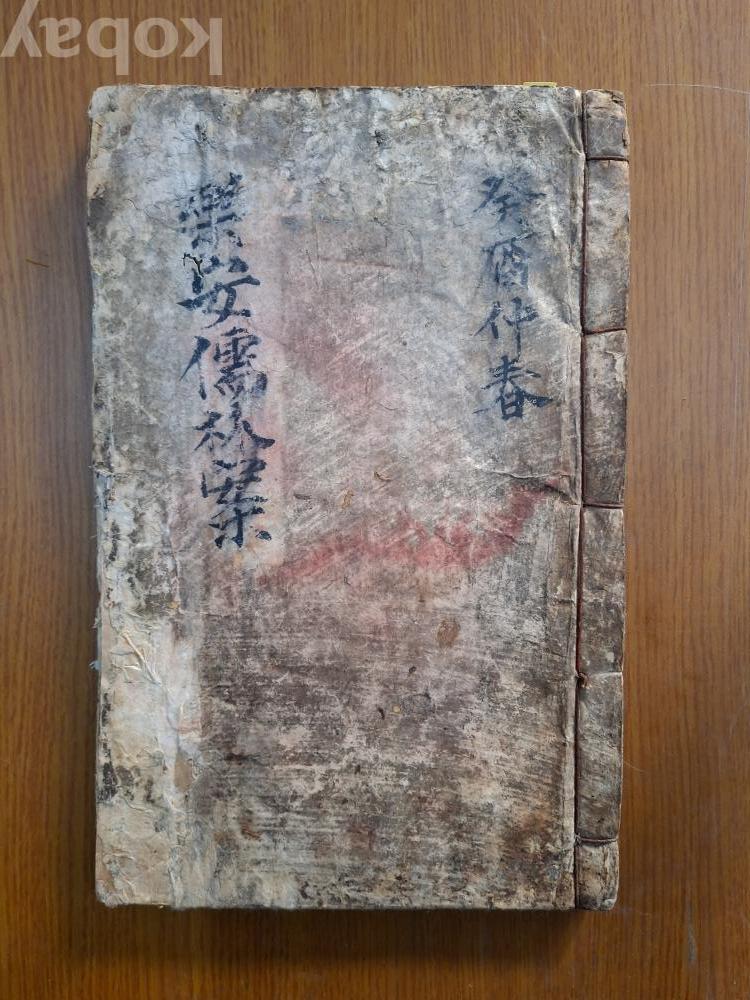 癸酉仲春
樂安儒林案
kobay